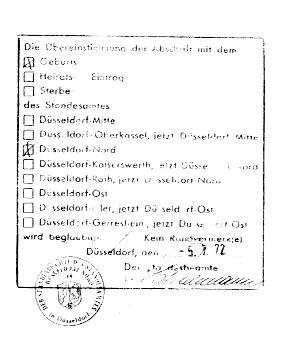 Die Übereinstimmung der Abschrift mit dem
Geburts-
Heirats- Eintrag
Sterbe-
des Standesamtes
Düsseldorf-Mitte
Düsseldorf-Oberkassel, jetzt Düsseldorf-Mitte
Düsseldorf-Nord
Düsseldorf-Kaiserswerth, jetzt Düsseldorf-Nord
Düsseldorf-Rath, jetzt Düsseldorf-Nord
Düsseldorf-Ost
Düsseldorf-Eller, jetzt Düsseldorf-Ost
Düsseldorf-Gerresheim, jetzt Düsseldorf-Ost
wird beglaubigt. Kein Randvermerk(e)
Düsseldorf, den -5. 72
Der Standesbeamte
in Düsseldorf